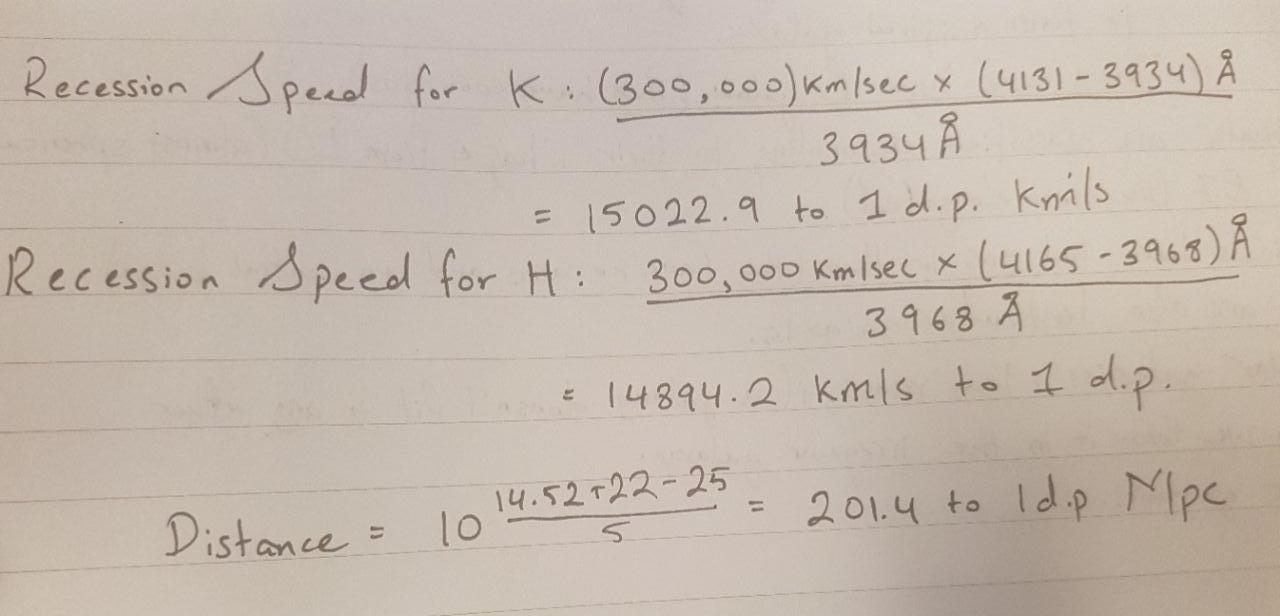 Recession Speed for K: (300,000)Km/sec x (4131-3934) Å
3934 Å
= 15022.9 to 1 d.p. Km/s
Recession Speed for H: 300,000 Km/sec x (4165-3968) Å
3968 Å
= 14894.2 km/s to 1 d.p.
14.52+22-25
Distance = 10 = 201.4 to 1d.p Mpc
5